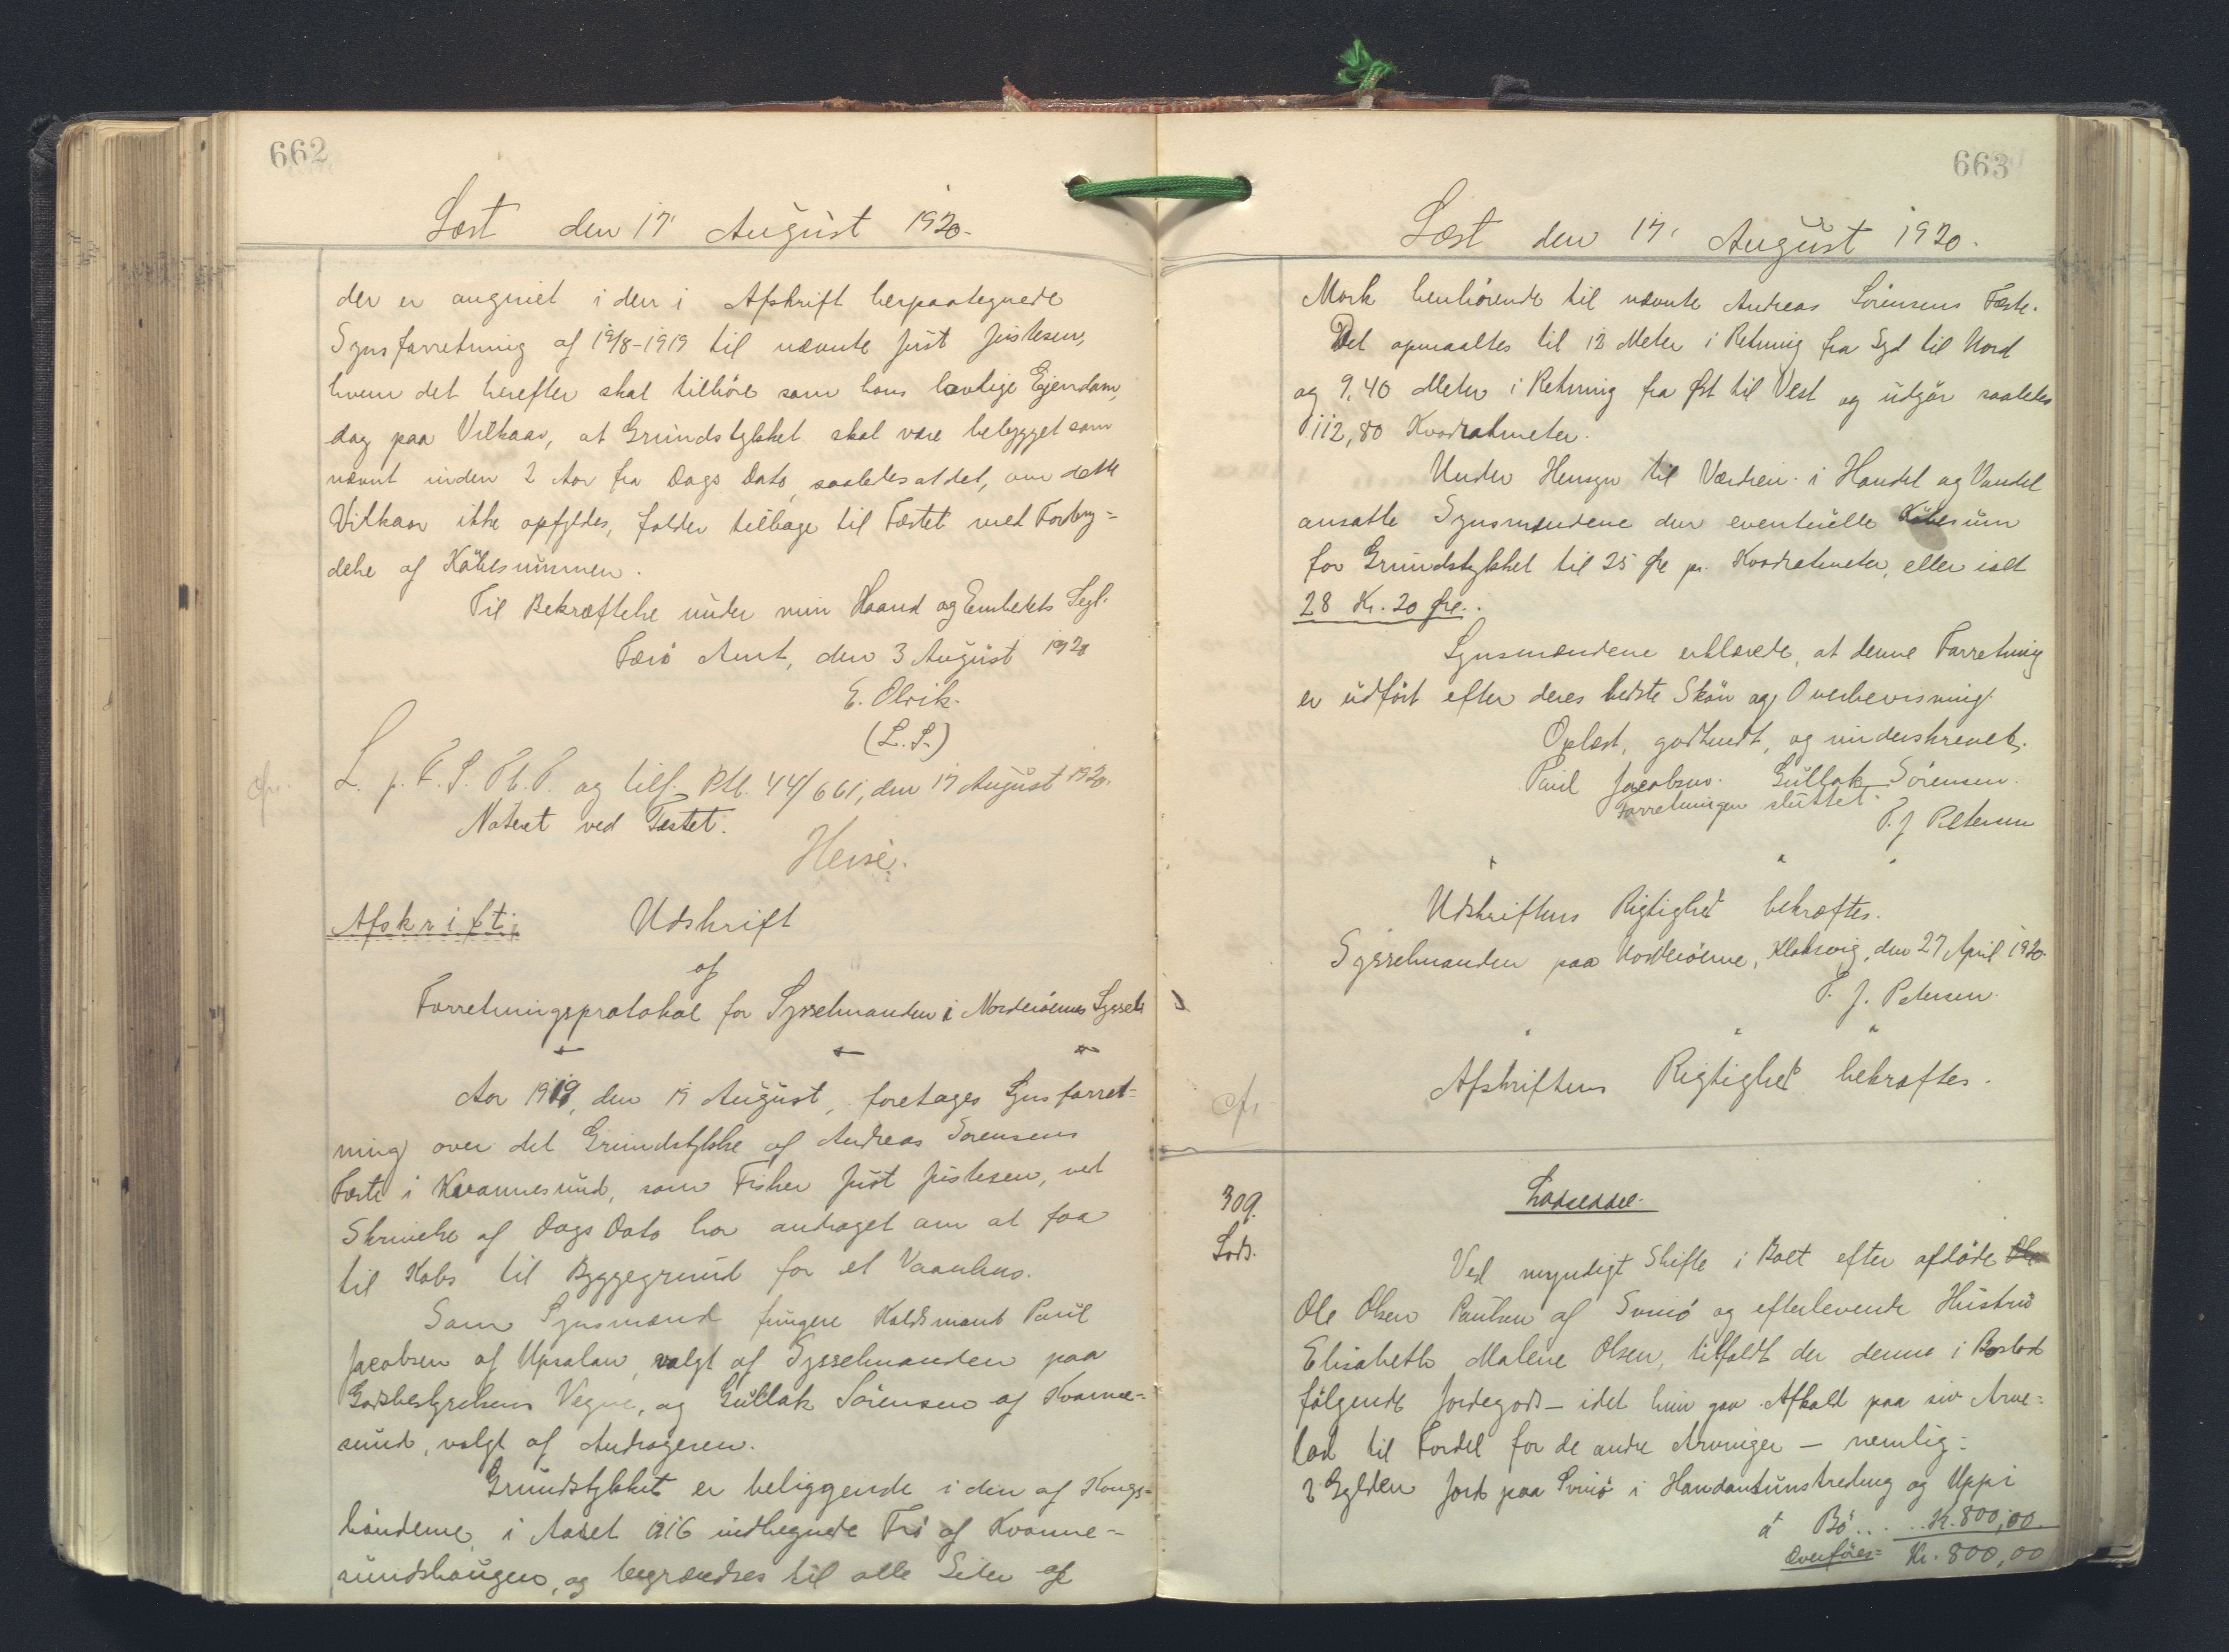 662
Læst den 17 August 1920.
der er angivet i den i Afskrift herpaategnede
Synsforretning af 19/8-1919 til nævnte Just Justesen,
hvem det herefter skal tilhöre som hans lovlige Ejendom,
dog paa Vilkaar, at Grundstykket skal være bebygget som
nævnt inden 2 Aar fra Dags Dato, saaledes at det, om dette
Vilkaar ikke opfyldes, falder tilbage til Fæstet med Forbry=
delse af Köbesummen.
Til Bekræftelse under min Haand og Embedets Segl.
Færö Amt, den 3 August 1920
E. Olrik.
(L.S.)
L. p. F. S. Th. P. og tilf. Ptl. 44/661, den 17 August 1920.
Noteret ved Fæstet.
Heise.
Afskrift: Udskrift
af
Forretningsprotokol for Sysselmanden i Norderöernes Syssel
Aar 1919, den 19 August, foretages Synsforret=
ning over det Grundstykke af Andreas Sorensens
Fæste i Kvannesund, som Fisker Just Justesen, ved
Skrivelse af Dags Dato har andraget om at faa
til Köbs til Byggegrund for et Vaanhus.
Som Synsmænd fungere Kaldsmand Paul
Jacobsen af Upsalan, valgt af Sysselmanden paa
Godsbestyrelsens Vegne, og Gullak Sörensen af Kvanne=
sund, valgt af Andrageren.
Grundstykket er beliggende i den af Kongs=
bönderne i Aaret 1916 indhegnede Trö af Kvanne=
sundshaugen, og begrændses til alle Sider af
663
Læst den 17. August 1920.
Mark henhörende til nævnte Andreas Sörensens Fæste.
Det opmaaltes til 12 Meter i Retning fra Syd til Nord
og 9,40 Meter i Retning fra Öst til Vest og udgör saaledes
112,80 Kvadratmeter.
Under Hensyn til Værdien i Handel og Vandel
ansatte Synsmændene den eventuelle Köbesum
for Grundstykket til 25 Öre pr. Kvadratmeter, eller ialt
28 Kr. 20 Öre.
Synsmændene erklærede, at denne Forretning
er udfört efter deres bedste Skön og Overbevisning.
Oplæst, godkendt, og underskrevet.
Paul Jacobsen. Gullak Sörensen.
Forretningen sluttet.
P. J. Petersen
Udskriftens Rigtighed bekræftes.
Sysselmanden paa Norderöerne, Klaksvig, den 27 April 1920
P. J. Petersen.
Afskriftens Rigtighed bekræftes.
309.
Lods.
Lodseddel.
Ved myndigt Skifte i Boet efter afdöde Ole
Ole Olsen Paulsen af Svinö og efterlevende Hustru
Elisabeth Malene Olsen, tilfaldt der denne i Boslod
fölgende Jordegods - idet hun gav Afkald paa sin Arve=
lod til Fordel for de andre Arvinger - nemlig:
2 Gylden Jord paa Svinö i Handantunstredeng og Uppi
á Bö.... Kr. 800,00.
Overföres= Kr. 800,00